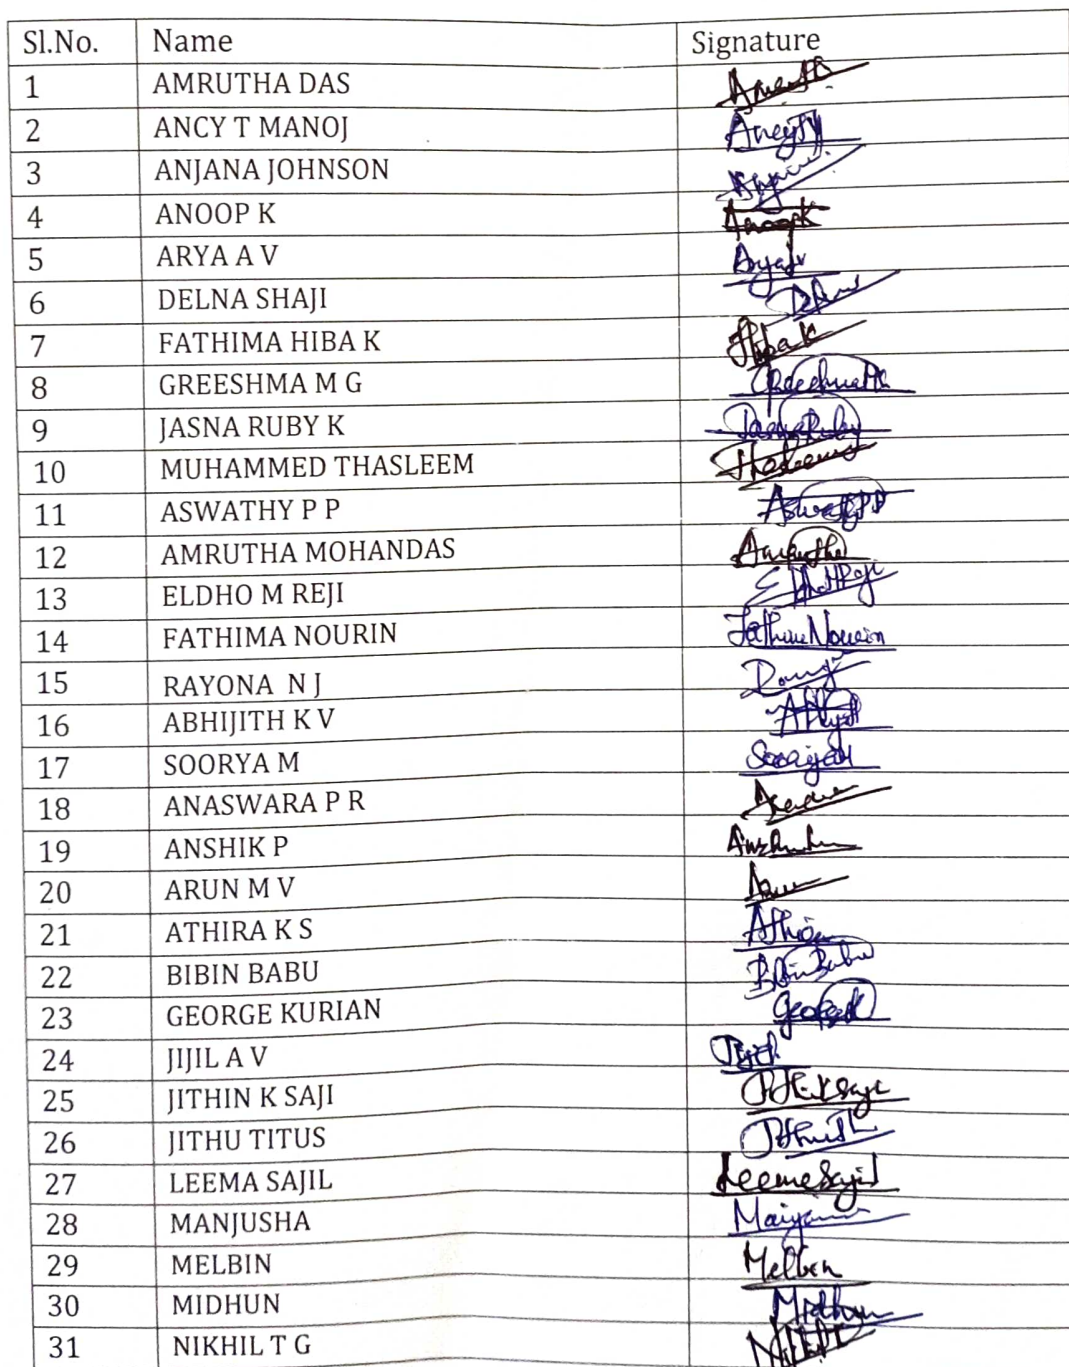 Sl.No. Name Signature
1 AMRUTHA DAS
2 ANCY T MANOJ AncyTM
3 ANJANA JOHNSON
4 ANOOP K AnoopK
5 ARYA A V
6 DELNA SHAJI
7 FATHIMA HIBA K Hiba K
8 GREESHMA M G
9 JASNA RUBY K JasnaRuby
10 MUHAMMED THASLEEM
11 ASWATHY P P
12 AMRUTHA MOHANDAS Amrutha
13 ELDHO M REJI
14 FATHIMA NOURIN Fathima Nourin
15 RAYONA N J
16 ABHIJITH K V
17 SOORYA M
18 ANASWARA P R
19 ANSHIK P
20 ARUN M V
21 ATHIRA K S Athira
22 BIBIN BABU Bibin Babu
23 GEORGE KURIAN
24 JIJIL A V
25 JITHIN K SAJI Jithin K Saji
26 JITHU TITUS
27 LEEMA SAJIL Leema Sajil
28 MANJUSHA
29 MELBIN Melbin
30 MIDHUN Midhun
31 NIKHIL T G